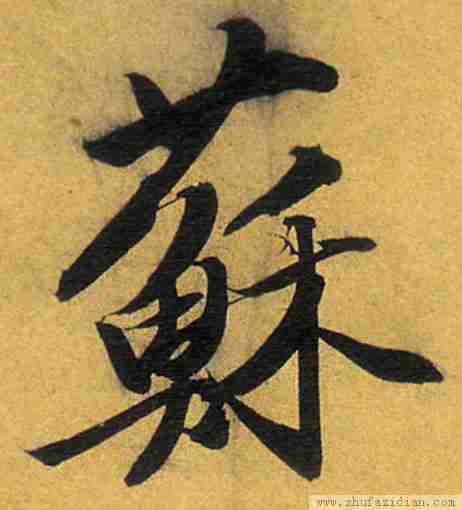 蘇
www.zhufazidian.com